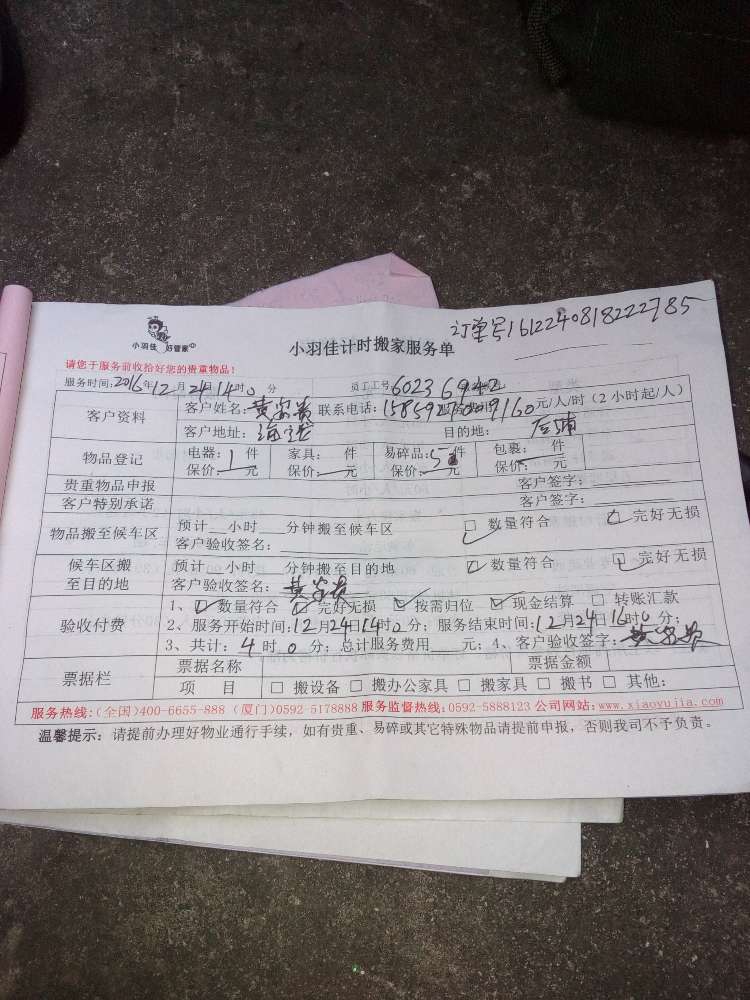 订单号161224081822785
小羽佳 好管家
小羽佳计时搬家服务单
请您于服务前收拾好您的贵重物品!
服务时间:2016年12月24日14时0分 员工工号:60236942
客户资料 客户姓名:黄 联系电话: 160元/人/时(2小时起/人)
客户地址: 目的地:后埔
物品登记 电器:1件 家具: 件 易碎品:5件 包裹: 件
保价: 元 保价: 元 保价: 元 保价: 元
贵重物品申报 客户签字:
客户特别承诺 客户签字:
物品搬至候车区 预计 小时 分钟搬至候车区 数量符合 完好无损
客户验收签名:
候车区搬至目的地 预计 小时 分钟搬至目的地 数量符合 完好无损
客户验收签名:黄
验收付费 1、数量符合 完好无损 按需归位 现金结算 转账汇款
2、服务开始时间:12月24日14时0分;服务结束时间:12月24日16时0分;
3、共计:4时0分;总计服务费用 元;4、客户验收签字:黄
票据栏 票据名称 票据金额
项 目 搬设备 搬办公家具 搬家具 搬书 其他:
服务热线:(全国)400-6655-888 (厦门)0592-5178888 服务监督热线:0592-5888123 公司网站:www.xiaoyujia.com
温馨提示:请提前办理好物业通行手续,如有贵重、易碎或其它特殊物品请提前申报,否则我司不予负责。